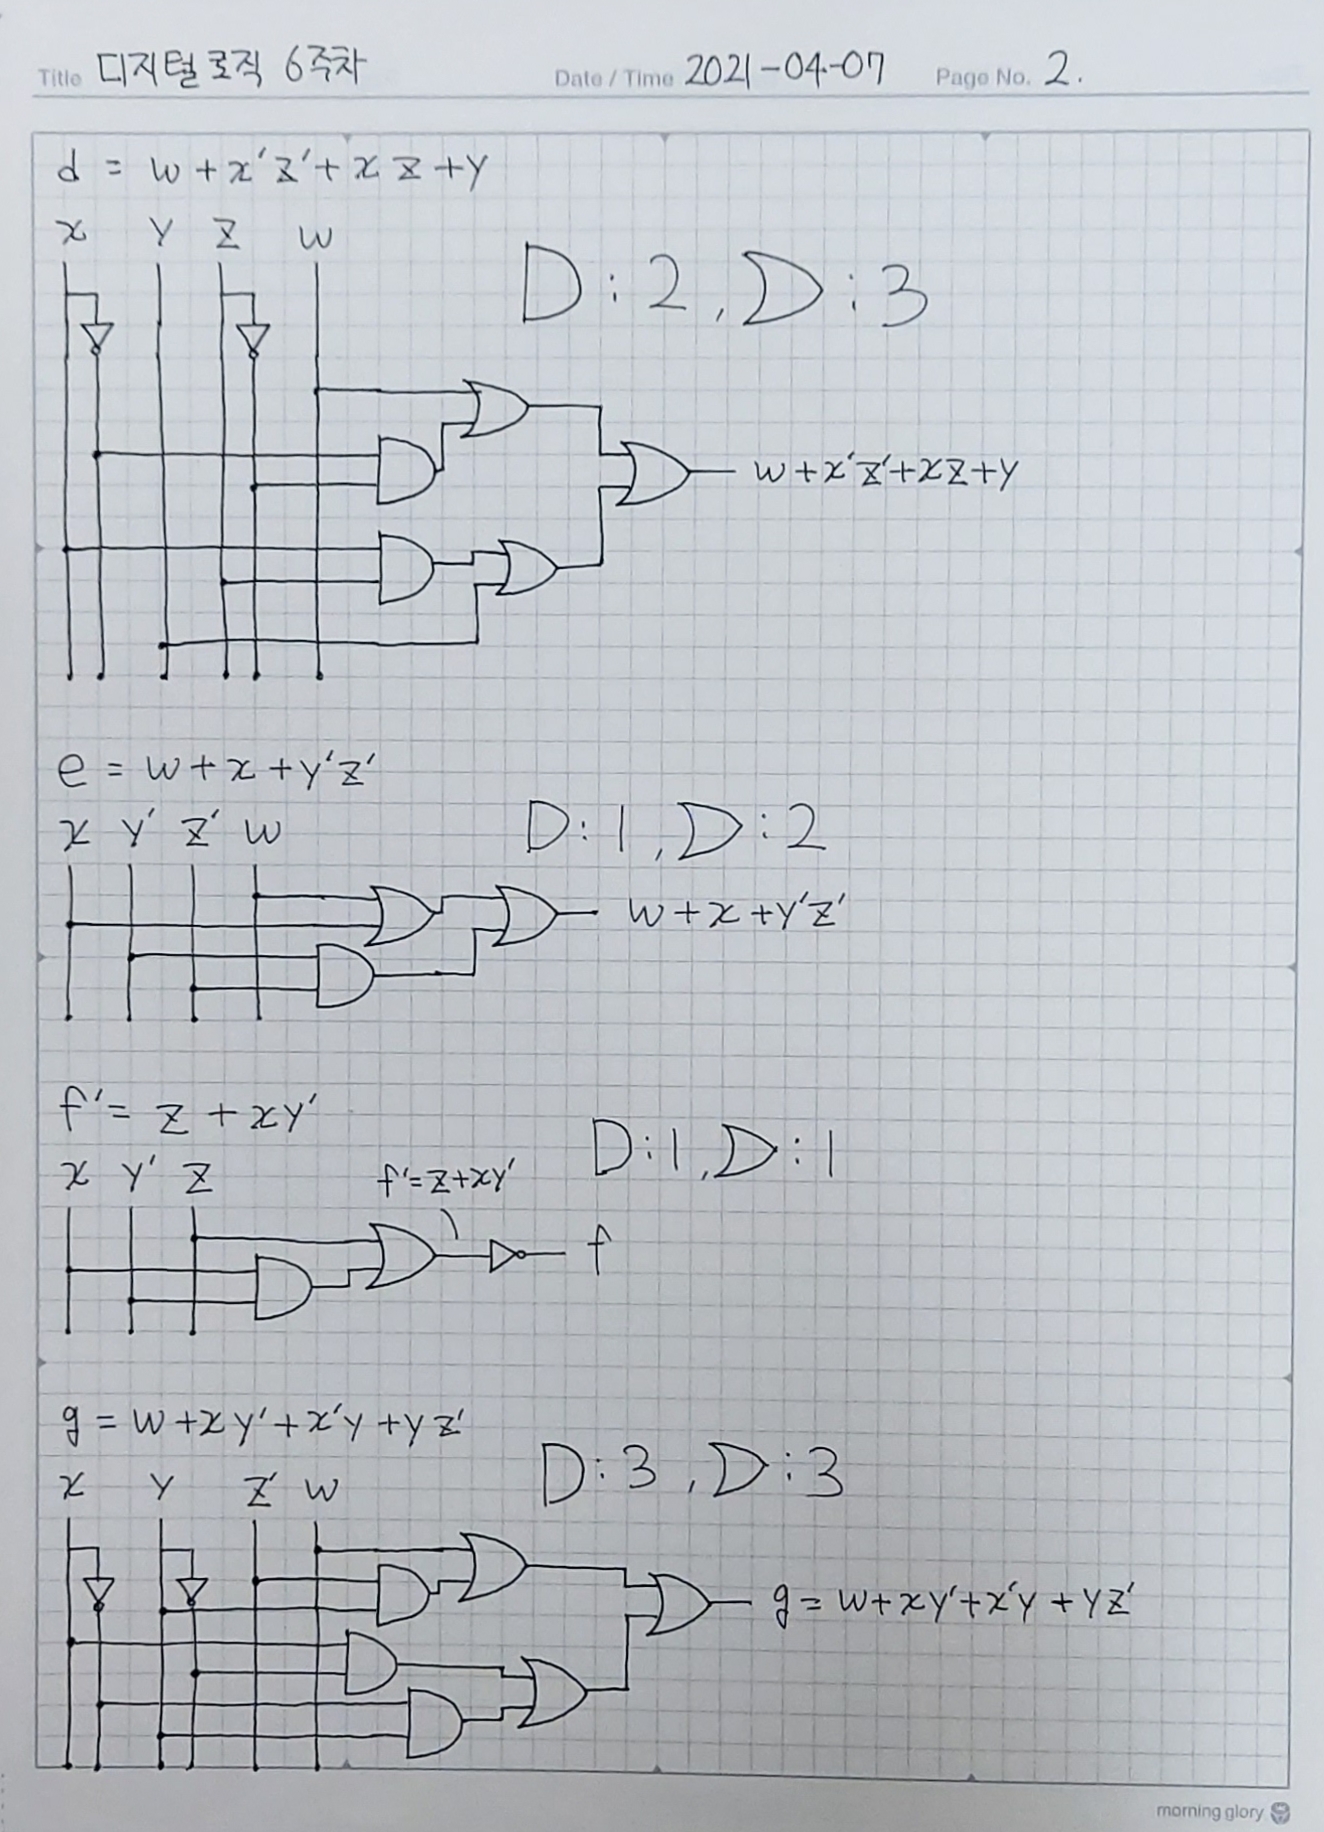 Title 디지털로직 6주차 Date / Time 2021-04-07 Page No. 2.
d = w+x'z'+xz+y
x y z w
D : 2 , D : 3
w+x'z'+xz+y
e = w+x+y'z'
x y' z' w
D : 1 , D : 2
w+x+y'z'
f' = z+xy'
x y' z
f'=z+xy'
D : 1 , D : 1
f
g = w+xy'+x'y+yz'
x y z' w
D : 3 , D : 3
g = w+xy'+x'y+yz'
morning glory